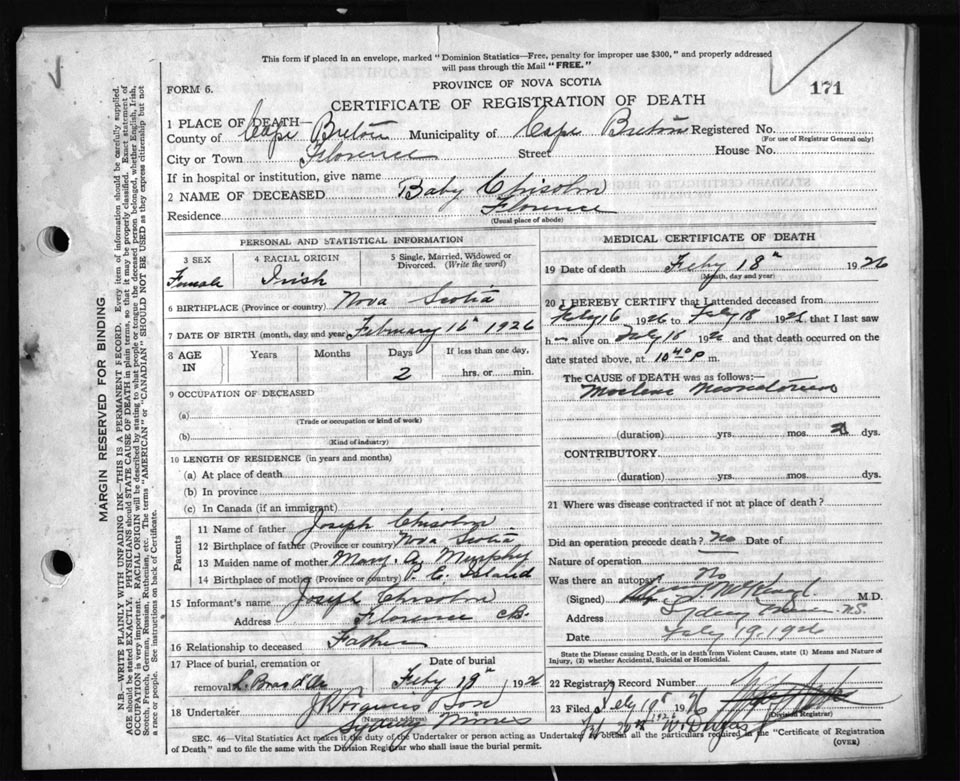 This form if placed in an envelope, marked "Dominion Statistics—Free, penalty for improper use $300," and properly addressed
will pass through the Mail "FREE."
PROVINCE OF NOVA SCOTIA
171
FORM 6.
CERTIFICATE OF REGISTRATION OF DEATH
1 PLACE OF DEATH—
County of Cape Breton Municipality of Cape Breton Registered No.
(For use of Registrar General only)
City or Town Florence Street House No.
If in hospital or institution, give name
2 NAME OF DECEASED Baby Chisolm
Residence Florence
(Usual place of abode)
PERSONAL AND STATISTICAL INFORMATION
3 SEX 4 RACIAL ORIGIN 5 Single, Married, Widowed or
Divorced. (Write the word)
Female Irish
6 BIRTHPLACE (Province or country) Nova Scotia
7 DATE OF BIRTH (month, day and year) February 16th 1926
8 AGE IN Years Months Days If less than one day,
2 hrs. or min.
9 OCCUPATION OF DECEASED
(a)
(Trade or occupation or kind of work)
(b)
(Kind of industry)
10 LENGTH OF RESIDENCE (in years and months)
(a) At place of death
(b) In province
(c) In Canada (if an immigrant)
Parents
11 Name of father Joseph Chisolm
12 Birthplace of father (Province or country) Nova Scotia
13 Maiden name of mother Mary A. Murphy
14 Birthplace of mother (Province or country) P. E. Island
15 Informant's name Joseph Chisolm
Address Florence CB.
16 Relationship to deceased Father
17 Place of burial, cremation or Date of burial
removal L. Bras d'Or Feby 19th 1926
18 Undertaker Son
(Name and address)
Sydney Mines
MEDICAL CERTIFICATE OF DEATH
19 Date of death Feby 18th 1926
(Month, day and year)
20 I HEREBY CERTIFY that I attended deceased from
Feby 16 1926 to Feby 18 1926 that I last saw
h alive on Feby 18 1926 and that death occurred on the
date stated above, at 10 40 p m.
The CAUSE OF DEATH was as follows:—
(duration) yrs. mos. 2 dys.
CONTRIBUTORY
(duration) yrs. mos. dys.
21 Where was disease contracted if not at place of death?
Did an operation precede death? No Date of
Nature of operation
Was there an autopsy No
(Signed) M.D.
Address Sydney Mines N.S.
Date Feby 19, 1926
State the Disease causing Death, or in death from Violent Causes, state (1) Means and Nature of
Injury, (2) whether Accidental, Suicidal or Homicidal.
22 Registrar's Record Number
23 Filed Feby 19th 1926
(Division Registrar)
1926
SEC. 46—Vital Statistics Act makes it the duty of the Undertaker or person acting as Undertaker to obtain all the particulars required in the "Certificate of Registration
of Death" and to file the same with the Division Registrar who shall issue the burial permit. (OVER)
MARGIN RESERVED FOR BINDING.
N.B.—WRITE PLAINLY WITH UNFADING INK—THIS IS A PERMANENT RECORD. Every item of information should be carefully supplied.
AGE should be stated EXACTLY. PHYSICIANS should STATE CAUSE OF DEATH in plain terms, so that it may be properly classified. Exact statement of
OCCUPATION is very important. RACIAL ORIGIN will be described by stating to what people or tongue the deceased person belonged, whether English, Irish,
Scotch, French, German, Russian, Ruthenian, etc. The terms "AMERICAN" or "CANADIAN" SHOULD NOT BE USED as they express citizenship but not
a race or people. See instructions on back of Certificate.